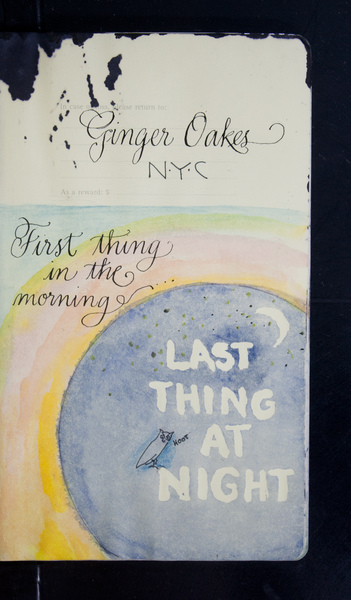 In case of loss, please return to:
Ginger Oakes
N.Y.C
As a reward: $
First thing
in the
morning...
LAST
THING
AT
HOOT
NIGHT